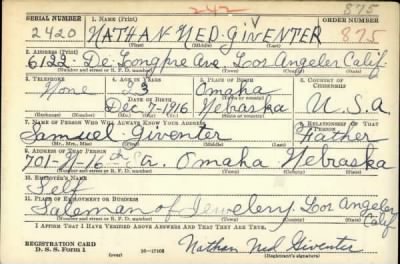 242
875
SERIAL NUMBER 1. NAME (Print) ORDER NUMBER
2420 NATHAN NED GIVENTER 875
(First) (Middle) (Last)
2. ADDRESS (Print)
6122 De Longpre Ave Los Angeles Calif.
(Number and street or R. F. D. number) (Town) (County) (State)
3. TELEPHONE 4. AGE IN YEARS 5. PLACE OF BIRTH 6. COUNTRY OF CITIZENSHIP
None 23 Omaha
DATE OF BIRTH (Town or county)
Dec 7 1916 Nebraska U.S.A
(Mo.) (Day) (Yr.) (State or country)
7. NAME OF PERSON WHO WILL ALWAYS KNOW YOUR ADDRESS 8. RELATIONSHIP OF THAT PERSON
Samuel Giventer Father
(Mr., Mrs., Miss) (First) (Middle) (Last)
9. ADDRESS OF THAT PERSON
701-N-16th Omaha Nebraska
(Number and street or R. F. D. number) (Town) (County) (State)
10. EMPLOYER'S NAME
Self
11. PLACE OF EMPLOYMENT OR BUSINESS
Saleman of Jewelery Los Angeles
Calif
(Number and street or R. F. D. number) (Town) (County) (State)
I AFFIRM THAT I HAVE VERIFIED ABOVE ANSWERS AND THAT THEY ARE TRUE.
REGISTRATION CARD
D. S. S. Form 1 16-17105 Nathan Ned Giventer
(Registrant's signature)